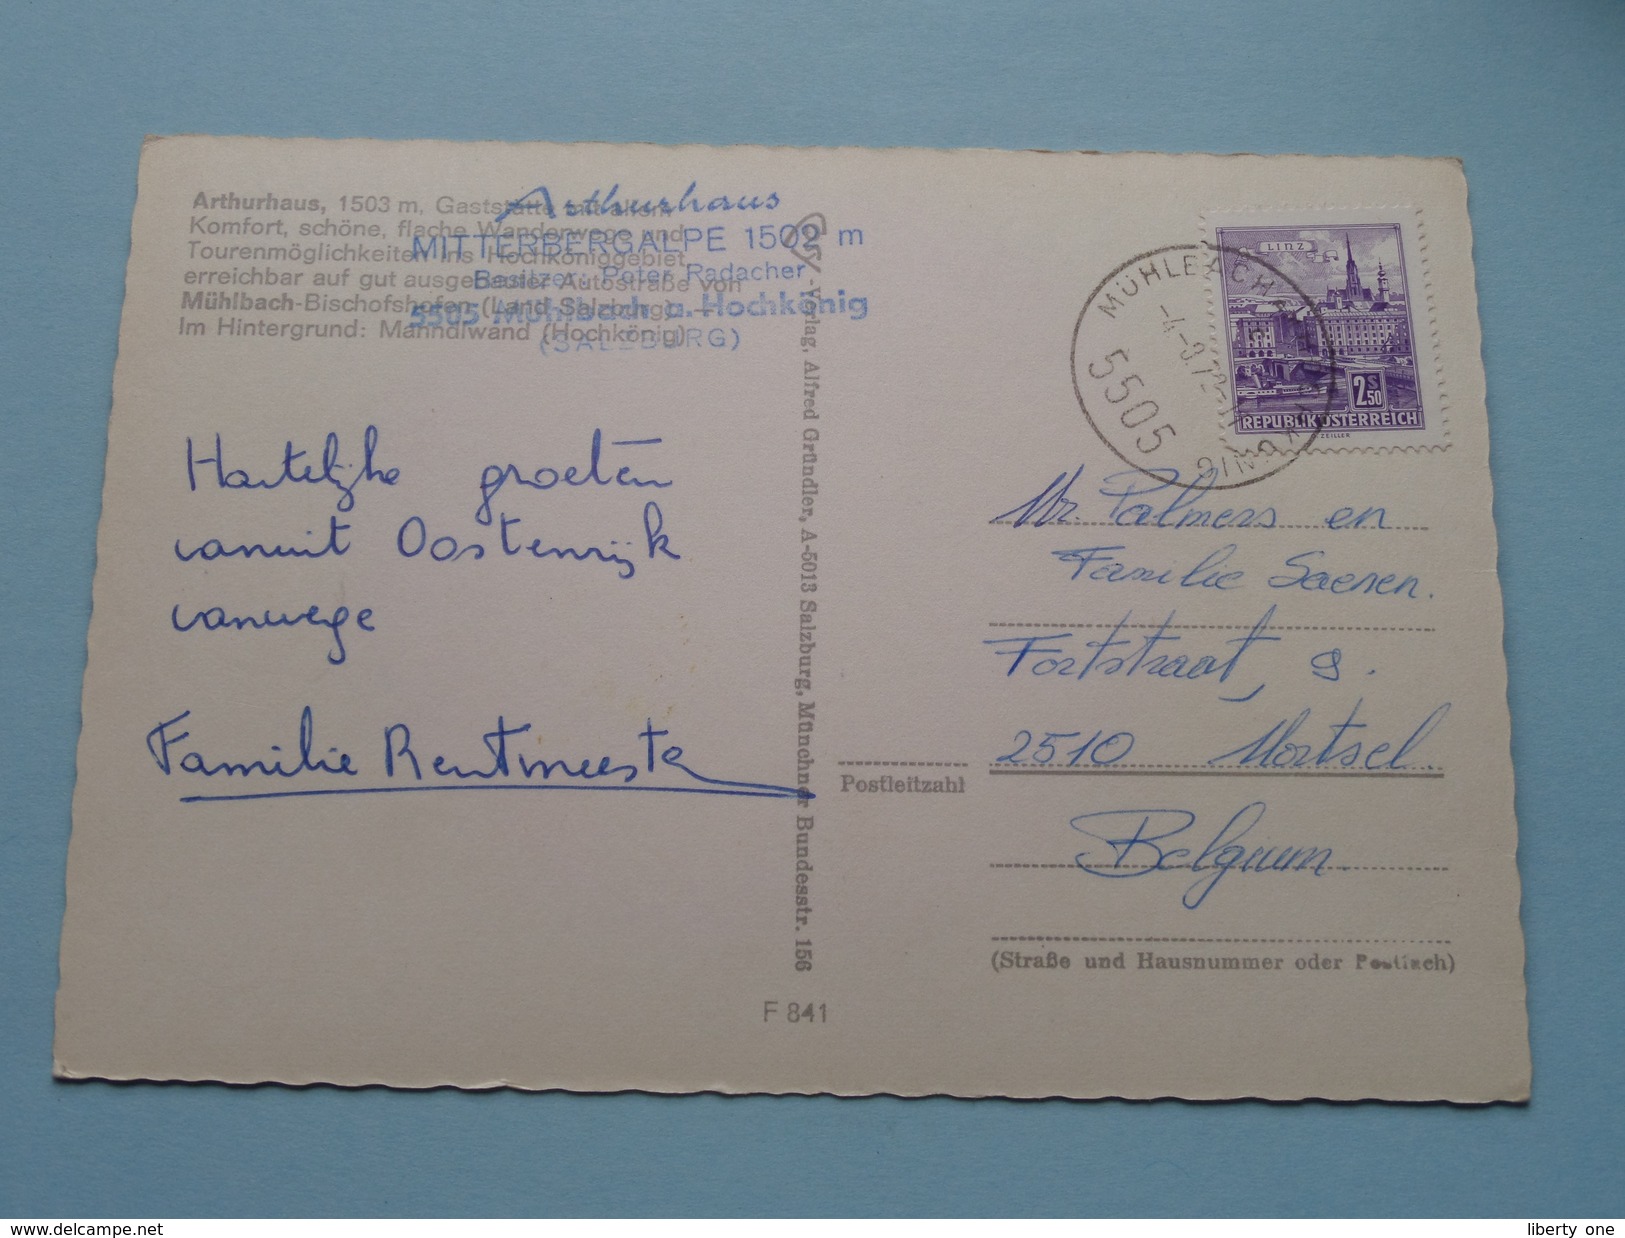 Arthurhaus, 1503 m, Gaststätte mit allem
Komfort, schöne, flache Wanderwege und
Tourenmöglichkeiten ins Hochköniggebiet
erreichbar auf gut ausgebauter Autostraße von
Mühlbach-Bischofshofen (Land Salzburg) —
Im Hintergrund: Mandlwand (Hochkönig)
Arthurhaus
MITTERBERGALPE 1502 m
Besitzer: Peter Radacher
5505 Mühlbach a. Hochkönig
(SALZBURG)
Hartelijke groeten
vanuit Oostenrijk
vanwege
Familie Rentmeester
-Verlag, Alfred Gründler, A-5013 Salzburg, Münchner Bundesstr. 156
F 841
LINZ
2 S 50
REPUBLIK ÖSTERREICH
ZEILLER
MÜHLBACH
5505
Mr. Palmers en
Familie Saenen.
Fortstraat, 9.
2510 Mortsel.
Postleitzahl
Belgium.
(Straße und Hausnummer oder Postfach)
delcampe.net
liberty one